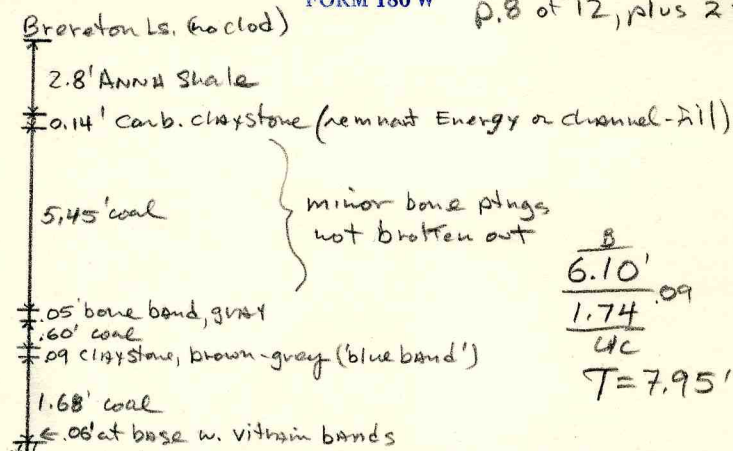 FORM 180 W
p.8 of 12, plus 2
Brereton Ls. (no clod)
2.8' ANNA Shale
0.14' Carb. claystone (remnant Energy or channel-fill)
5.45' coal
minor bone ptngs
not broken out
.05' bone band, gray
.60' coal
.09 claystone, brown-gray ('blue band')
1.68' coal
←.06' at base w. vitrain bands
B
6.10'
.09
1.74
T=7.95'